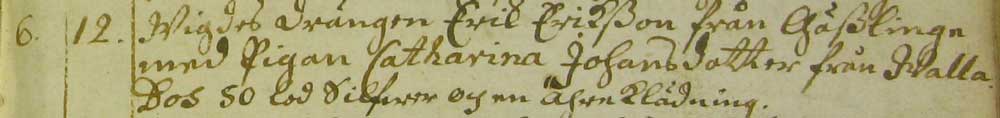 6. 12. Wigdes Drängen Eric Erikßon från Gäßlinge
med Pigan Catharina Johansdotter från Walla
50 lod Silfwer och en Åhreklädning.